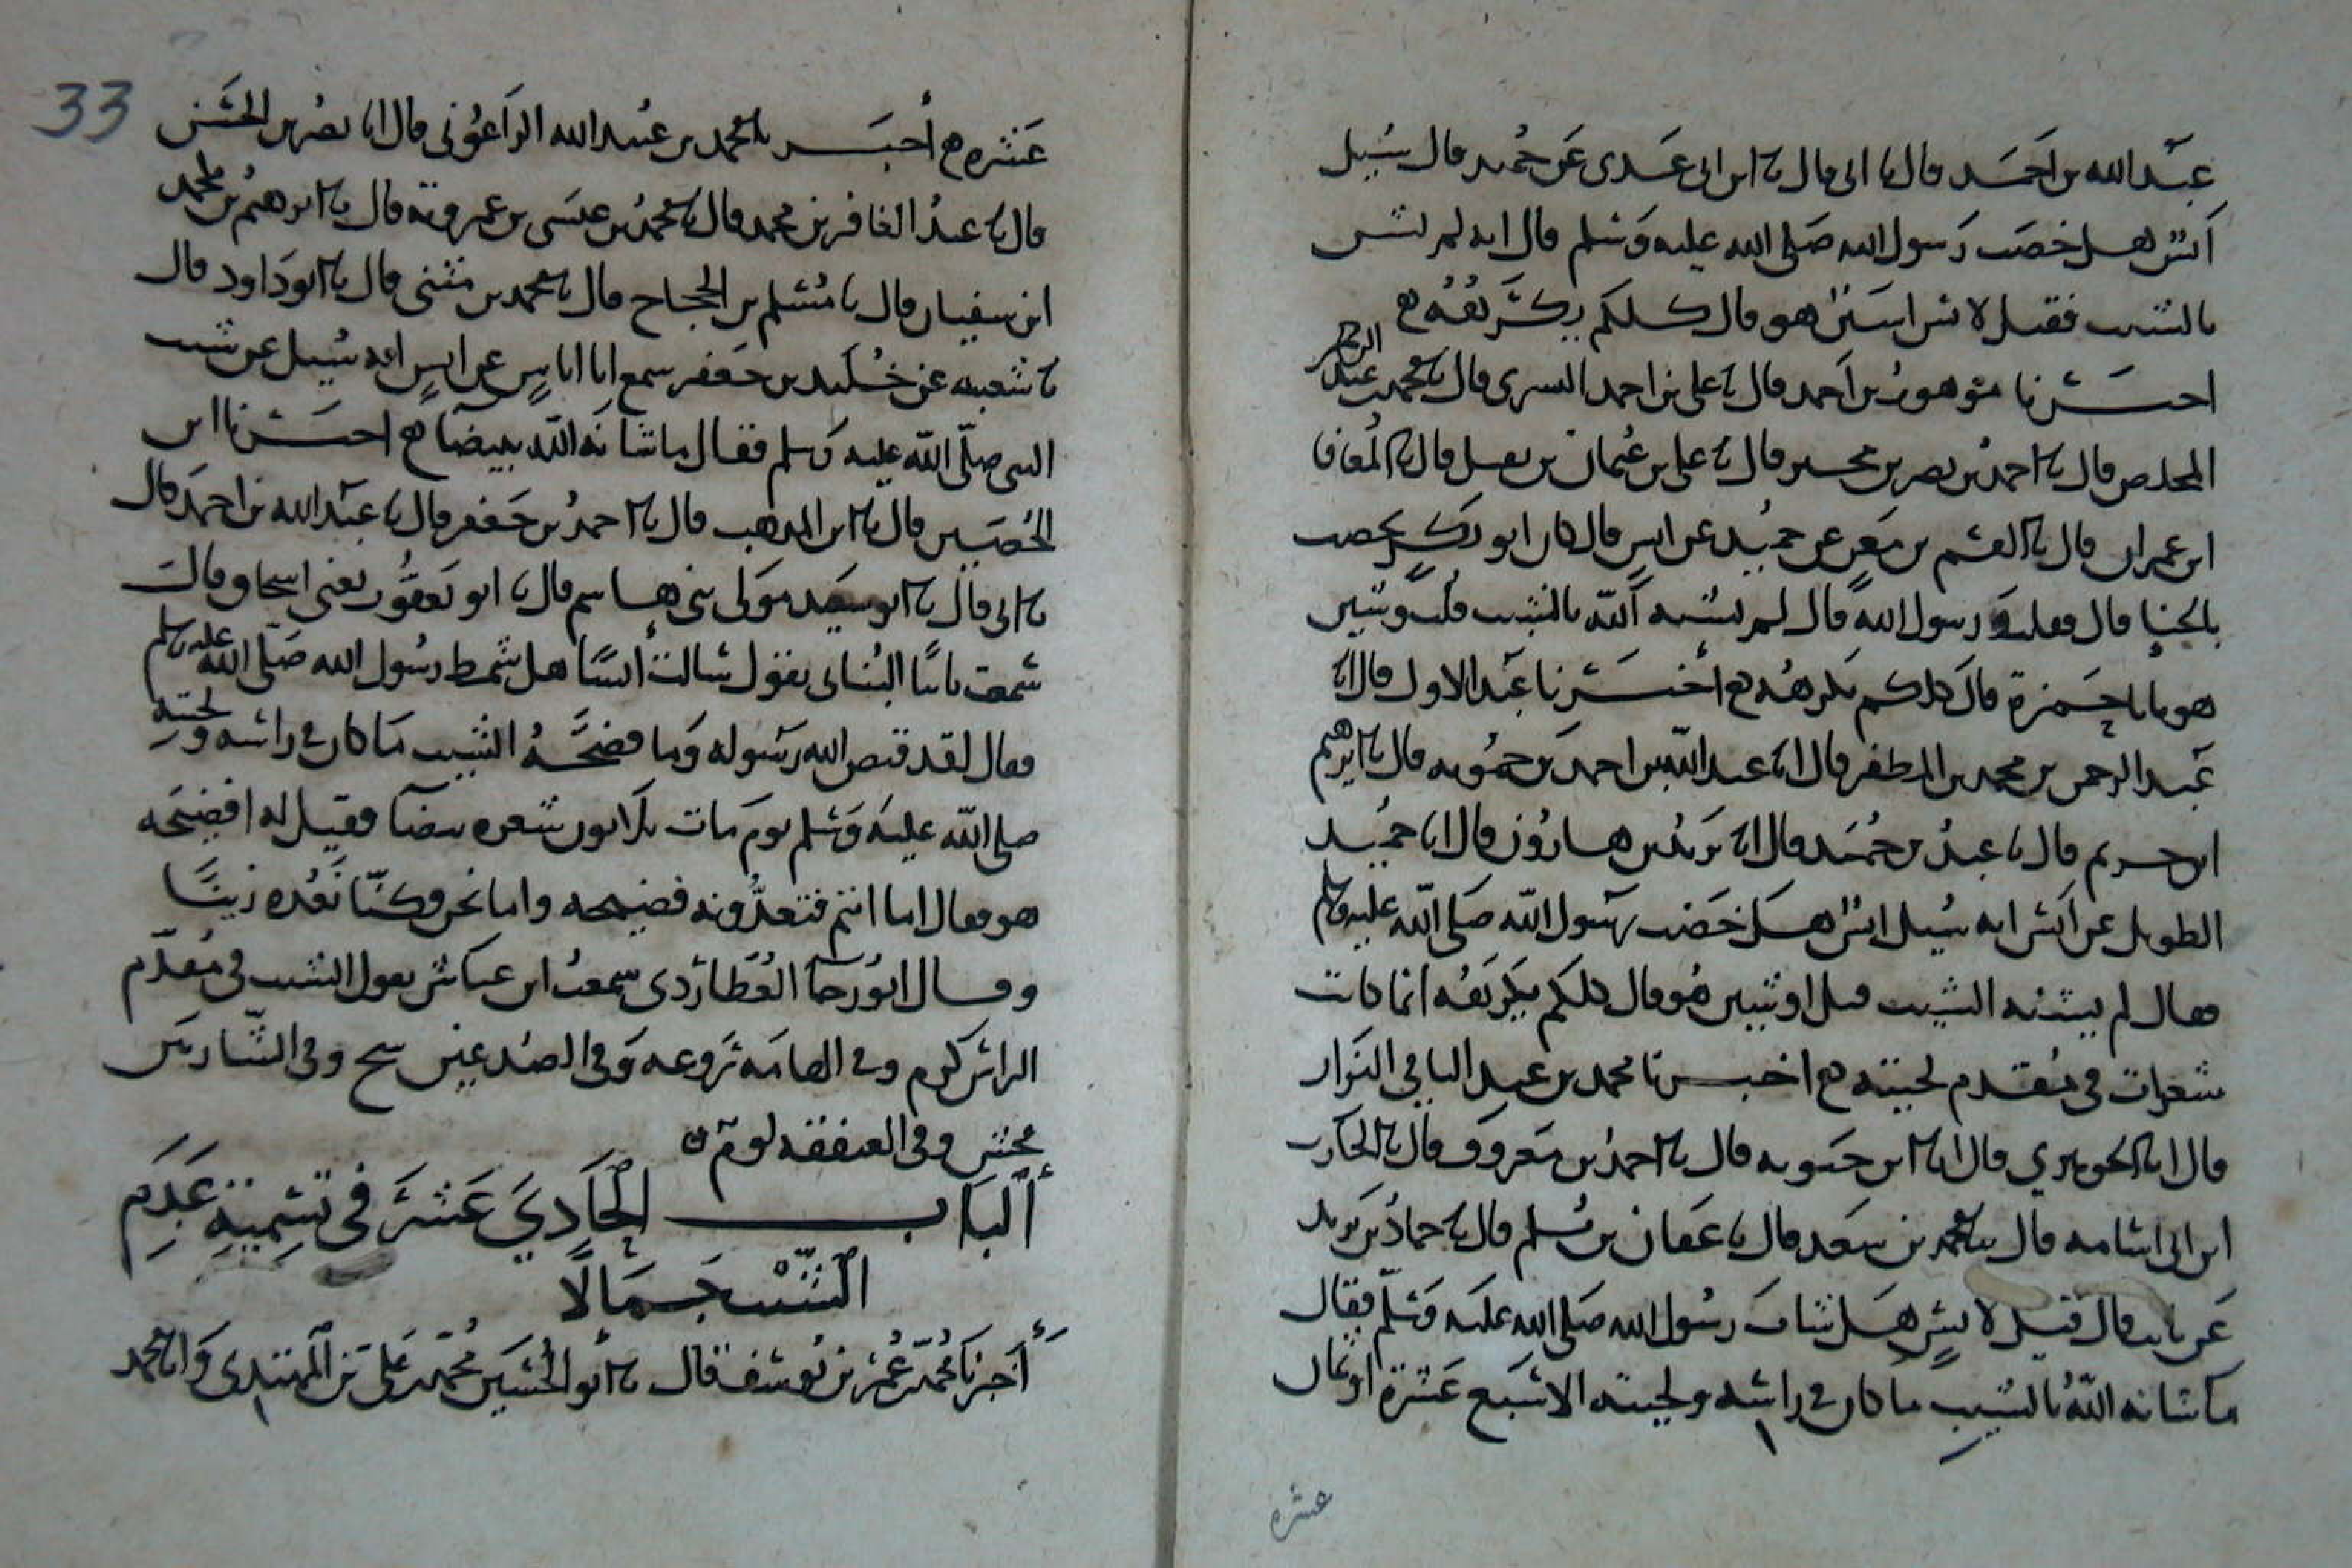 عبد الله بن احمد قال نا ابى قال نا ابن ابى عدى عن حميد قال سُيل
انس هل خضب رسول الله صلى الله عليه وسلم قال انه لم يشنه
بالشيب فقيل لانس اشين هو قال كلكم يكرهه
اخبرنا موهوب بن احمد قال نا على بن احمد البسرى قال نا محمد بن عبد الرحمن
المخلص قال نا احمد بن نصر بن بحير قال نا على بن عثمان بن نفيل قال نا المعافا
ابن عمران قال نا القسم بن معن عن حميد عن انس قال كان ابو بكر يخضب
بالحنا قال فقلت و رسول الله قال لم يشنه الله بالشيب قلت وشين
هو يا با حمزة قال كلكم يكرهه اخبرنا عبد الاول قال انا
عبد الرحمن بن محمد بن المظفر قال انا عبد الله بن احمد بن حمويه قال نا ابرهيم
ابن خريم قال نا عبد بن حميد قال انا يزيد بن هارون قال انا حميد
الطويل عن انس انه سيل انس هل خضب رسول الله صلى الله عليه وسلم
فقال لم يشنه الشيب قيل اوشين هو قال كلكم يكرهه انما كانت
شعرات فى مقدم لحيته اخبرنا محمد بن عبد الباقى البزار
قال انا الجوهرى قال انا ابن حيويه قال نا احمد بن معروف قال نا الحارث
ابن ابى اسامه قال نا محمد بن سعد قال نا عفان بن مسلم قال نا حماد بن زيد
عن ثابت قال قيل لانس هل شاب رسول الله صلى الله عليه وسلم فقال
ما شانه الله بالشيب ما كان فى راسه ولحيته الا سبع عشرة او ثمان
عشره
33
عشره اخبرنا محمد بن عبيد الله الزاغونى قال انا نصر بن الحسن
قال نا عبد الغافر بن محمد قال نا محمد بن عيسى بن عمرويه قال نا ابرهيم بن محمد
ابن سفيان قال نا مسلم بن الحجاج قال نا محمد بن مثنى قال نا ابو داود قال
نا شعبه عن خليد بن جعفر سمع ابا اياس عن انس انه سُيل عن شيب
النبى صلى الله عليه وسلم فقال ما شانه الله ببيضا اخبرنا ابن
الحصين قال نا ابن المذهب قال نا احمد بن جعفر قال نا عبد الله بن احمد قال
نا ابى قال نا ابو سعيد مولى بنى هاشم قال نا ابو يعقوب يعنى اسحاق قالت
سمعت ثابتا البنانى يقول سالت انسا هل شمط رسول الله صلى الله عليه وسلم
فقال لقد قبض الله رسوله وما فضحه الشيب ما كان فى راسه و لحيته
صلى الله عليه وسلم يوم مات ثلاثون شعره بيضا فقيل له افضيحه
هو فقال اما انتم فتعدونه فضيحه واما نحن فكنا نعده زينا
وقال ابو رجا العطاردى سمعت ابن عباس يقول الشيب فى مقدم
الراس كرم وفى الهامه روعه وفى الصدغين شح وفى الشاربين
فحش وفى العنفقه لوم
الباب الحادى عشر فى تسمية عدم
الشيب جمالا
اخبرنا محمد بن عمر بن يوسف قال نا ابو الحسين محمد بن على بن المهتدى وانا محمد